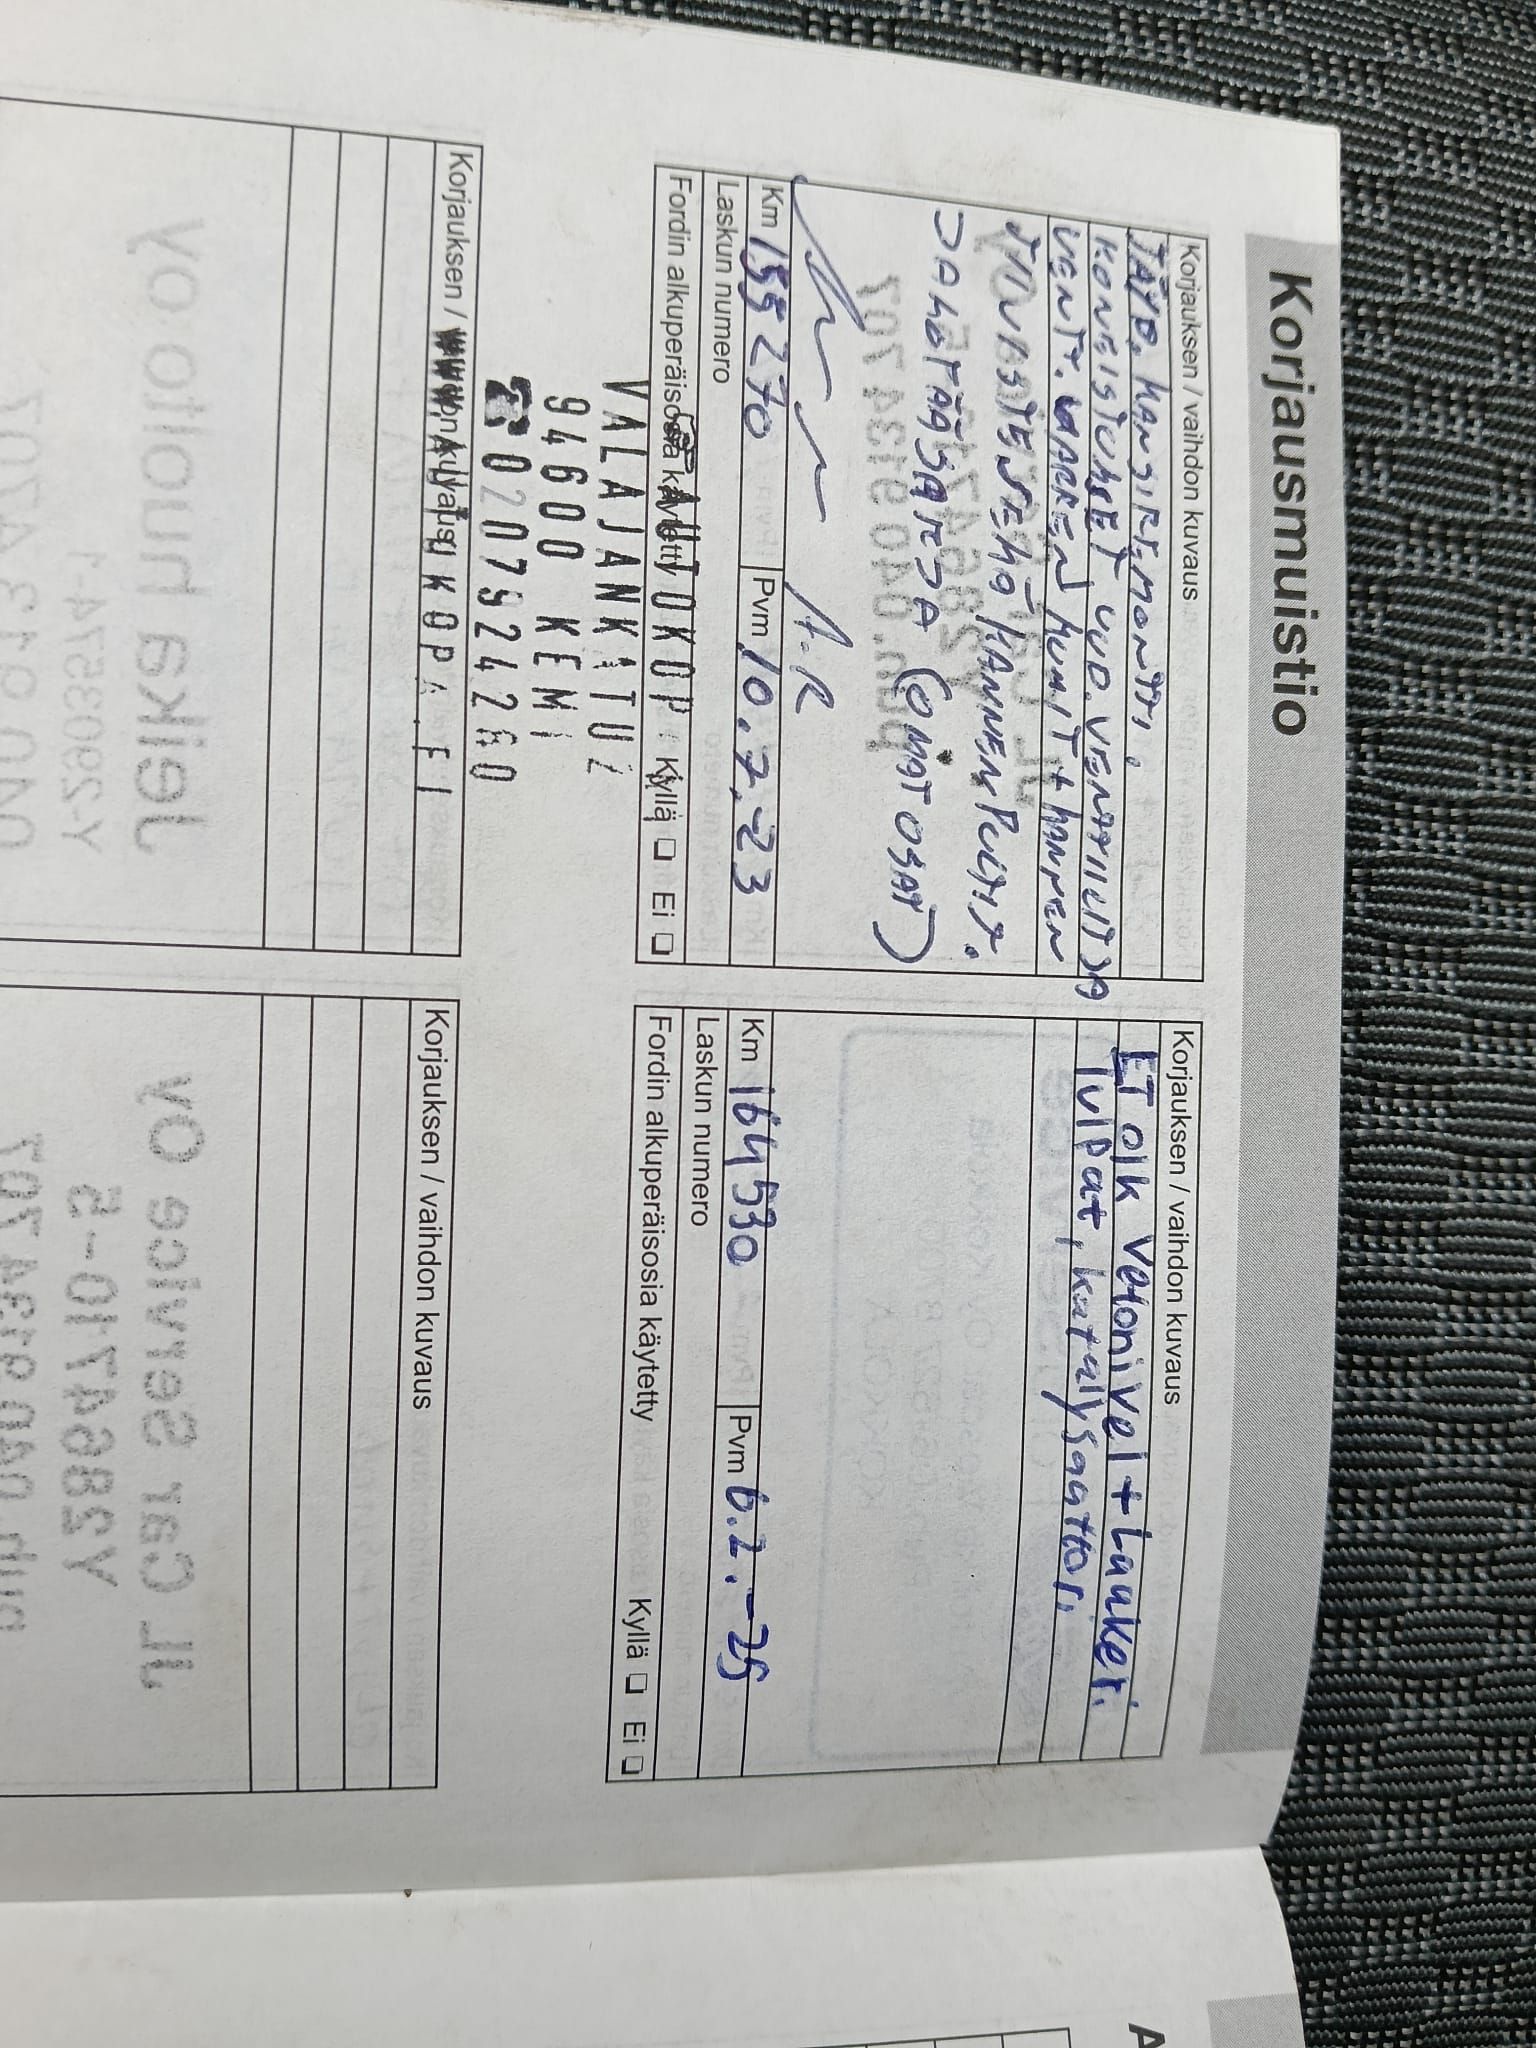 Korjausmuistio
Korjauksen / vaihdon kuvaus
TÄYD. KANSIREMONTTI.
KONEISTUKSET UUD. VENTTIILIT JA
VENT. VARREN KUMIT + KANNEN
TIIVISTE SEKÄ KANNEN PULTIT.
JAKOPÄÄSARJA (OMAT OSAT)
A.R
Km 155270 Pvm 10.7.-23
Laskun numero
Fordin alkuperäisosia käytetty Kyllä ❏ Ei ❏
VALAJANKATU 2
94600 KEMI
☎ 0207924260
Korjauksen /
Korjauksen / vaihdon kuvaus
ET oik Vetonivel + Laakeri
Tulpat, katalysaattori
Km 164530 Pvm 6.2.-25
Laskun numero
Fordin alkuperäisosia käytetty Kyllä ❏ Ei ❏
Korjauksen / vaihdon kuvaus
A